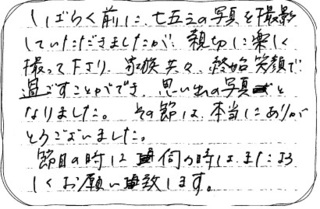 しばらく前に、七五三の写真を撮影
していただきましたが、親切に楽しく
撮って下さり、家族共々、終始笑顔で
過ごすことができ、思い出の写真と
なりました。その節は、本当にありが
とうございました。
節目の時には何の時はまたよろ
しくお願い致します。